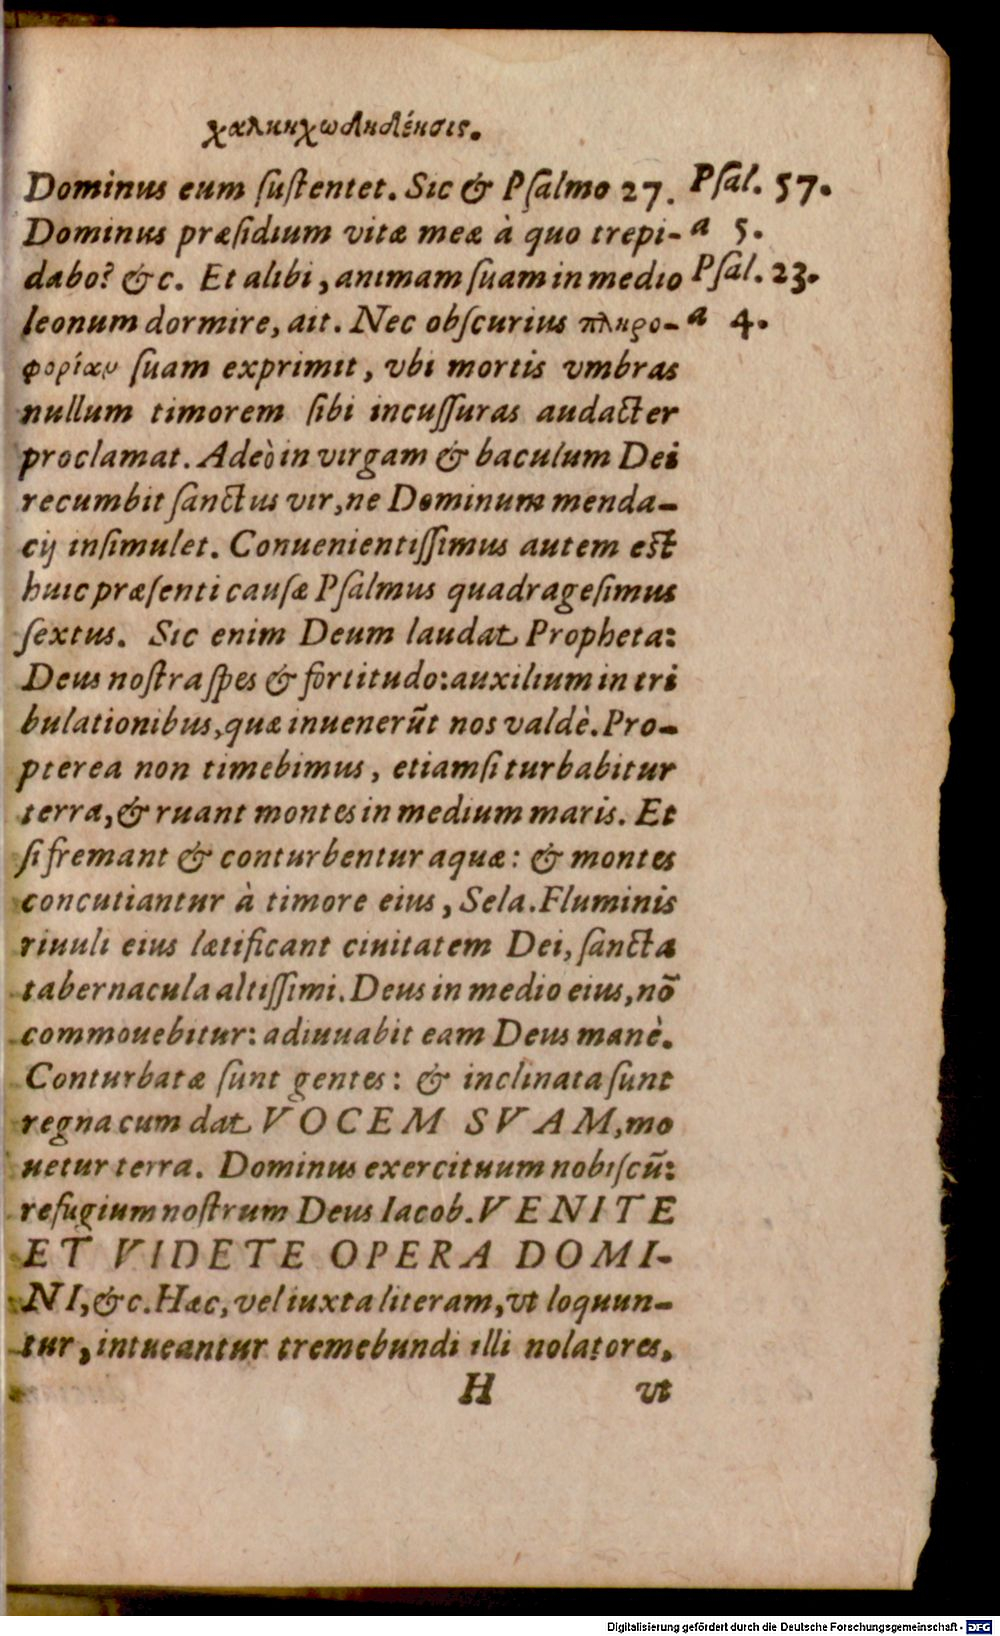 χαλκηχωδηδένσις.
Dominus eum ſuſtentet. Sic & Pſalmo 27. Pſal. 57.
Dominus præſidium vitæ meæ à quo trepi- a 5.
dabo? &c. Et alibi, animam ſuam in medio Pſal. 23.
leonum dormire, ait. Nec obſcurius πληρο- a 4.
φορίαν ſuam exprimit, vbi mortis vmbras
nullum timorem ſibi incuſſuras audacter
proclamat. Adeò in virgam & baculum Dei
recumbit ſanctus vir, ne Dominum menda-
cij inſimulet. Conuenientiſſimus autem eſt
huic præſenti cauſæ Pſalmus quadrageſimus
ſextus. Sic enim Deum laudat Propheta:
Deus noſtra ſpes & fortitudo: auxilium in tri
bulationibus, quæ inuenerūt nos valdè. Pro-
pterea non timebimus, etiamſi turbabitur
terra, & ruant montes in medium maris. Et
ſi fremant & conturbentur aquæ: & montes
concutiantur à timore eius, Sela. Fluminis
riuuli eius lætificant ciuitatem Dei, ſancta
tabernacula altiſſimi. Deus in medio eius, nō
commouebitur: adiuuabit eam Deus manè.
Conturbatæ ſunt gentes: & inclinata ſunt
regna cum dat VOCEM SVAM, mo
uetur terra. Dominus exercituum nobiſcū:
refugium noſtrum Deus Iacob. VENITE
ET VIDETE OPERA DOMI-
NI, &c. Hæc, vel iuxta literam, vt loquun-
tur, intueantur tremebundi illi nolatores,
H vt
Digitalisierung gefördert durch die Deutsche Forschungsgemeinschaft - DFG